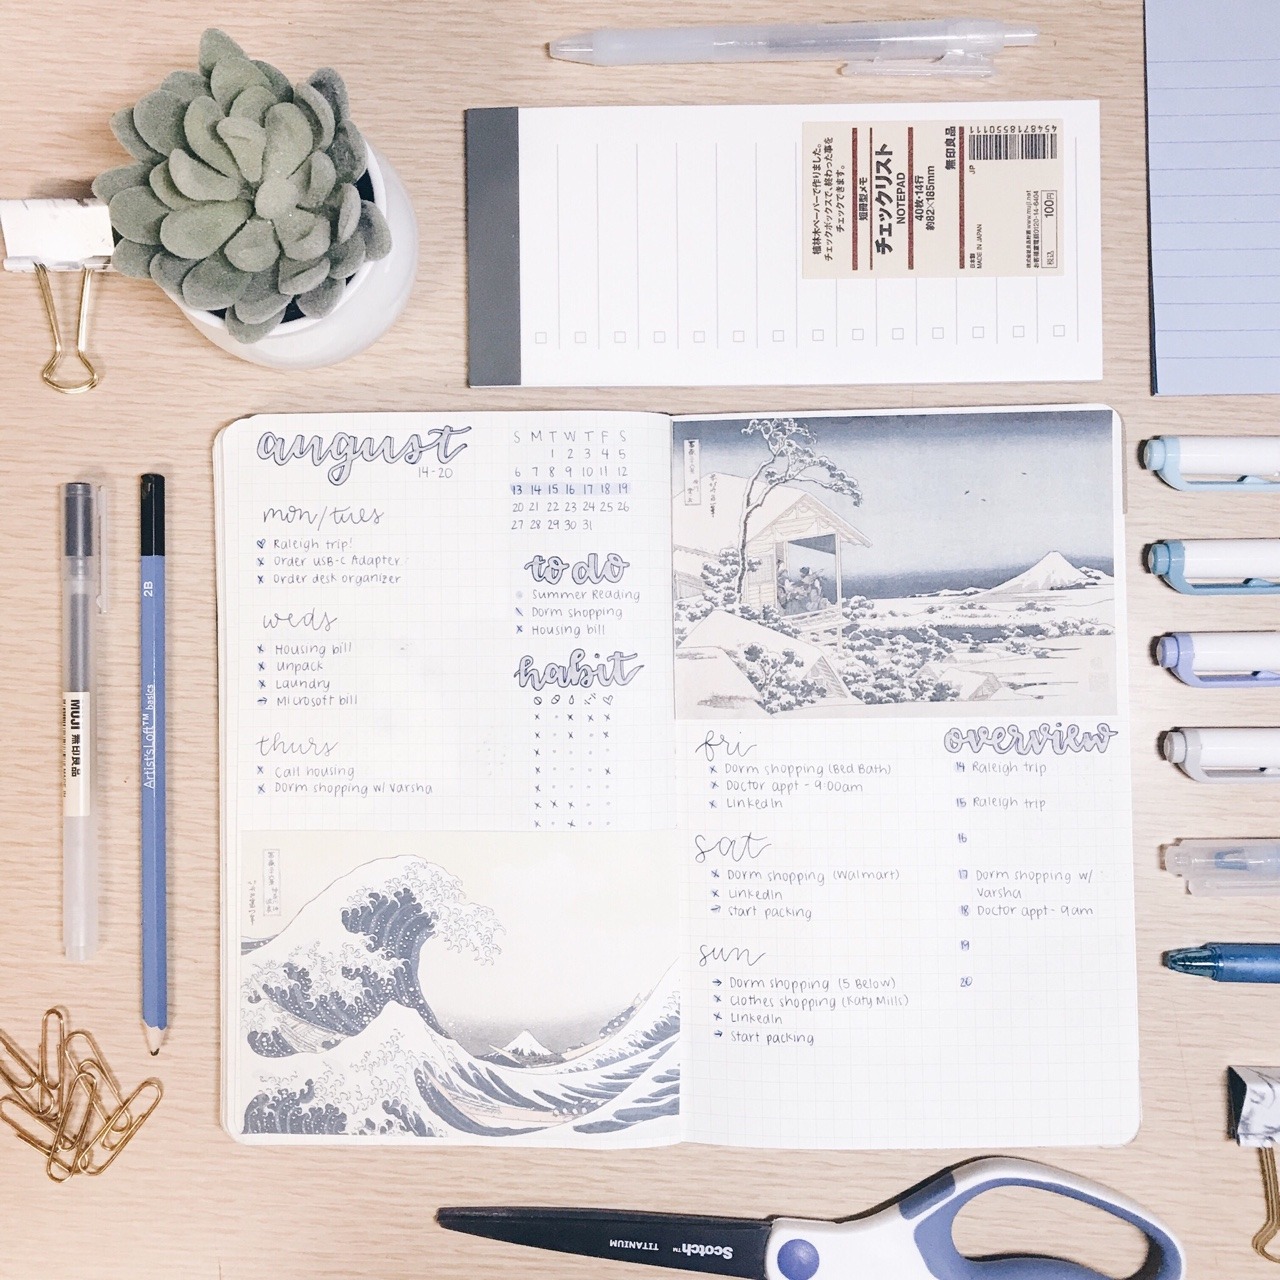 植林木ペーパーで作りました。
チェックボックスで、終わった事を
チェックできます。
短冊型メモ
チェックリスト
NOTEPAD
40枚・14行
約82×185mm
無印良品
4548718550111
JP
日本製
MADE IN JAPAN
株式会社良品計画 www.muji.net
お客様室電話0120-14-6404
税込
100円
august
14-20
S M T W T F S
1 2 3 4 5
6 7 8 9 10 11 12
13 14 15 16 17 18 19
20 21 22 23 24 25 26
27 28 29 30 31
mon/tues
Raleigh trip!
x Order USB-C Adapter
x Order desk organizer
weds
x Housing bill
x Unpack
x Laundry
→ Microsoft bill
thurs
x Call housing
x Dorm shopping w/ Varsha
to do
Summer Reading
\ Dorm shopping
x Housing bill
habit
fri
x Dorm shopping (Bed Bath)
x Doctor appt - 9:00am
x LinkedIn
sat
x Dorm shopping (Walmart)
x LinkedIn
→ Start packing
sun
→ Dorm shopping (5 Below)
x Clothes shopping (Katy Mills)
x LinkedIn
→ Start packing
overview
14 Raleigh trip
15 Raleigh trip
16
17 Dorm shopping w/
Varsha
18 Doctor appt - 9am
19
20
MUJI 無印良品
2B
Artist'sLoft™ basics
Scotch™ TITANIUM